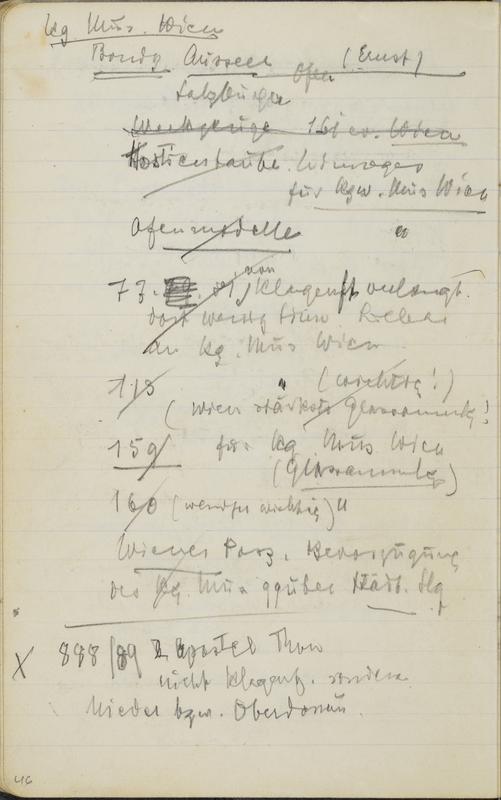 kg. Mus. Wien
Bondy Aussee (Ernst)
Ofen
Salzburger
Werkzeuge 16 Wien
Hostientaube. Limoges
für kgw. Mus Wien
Ofenmodelle "
73. von Klagenft verlangt.
dort wenig
an kg. Mus Wien
113 " (wichtig!)
(Wien Glassammlg!
159 für kg Mus. Wien
(Glassammlg)
160 (weniger wichtig) "
Wiener Porz. Bevorzugung
des kg. Mus. ggüber Städt. Slg
X 888/89 2 Apostel Thon
nicht Klagenf. sondern
Nieder bzw. Oberdonau.
46